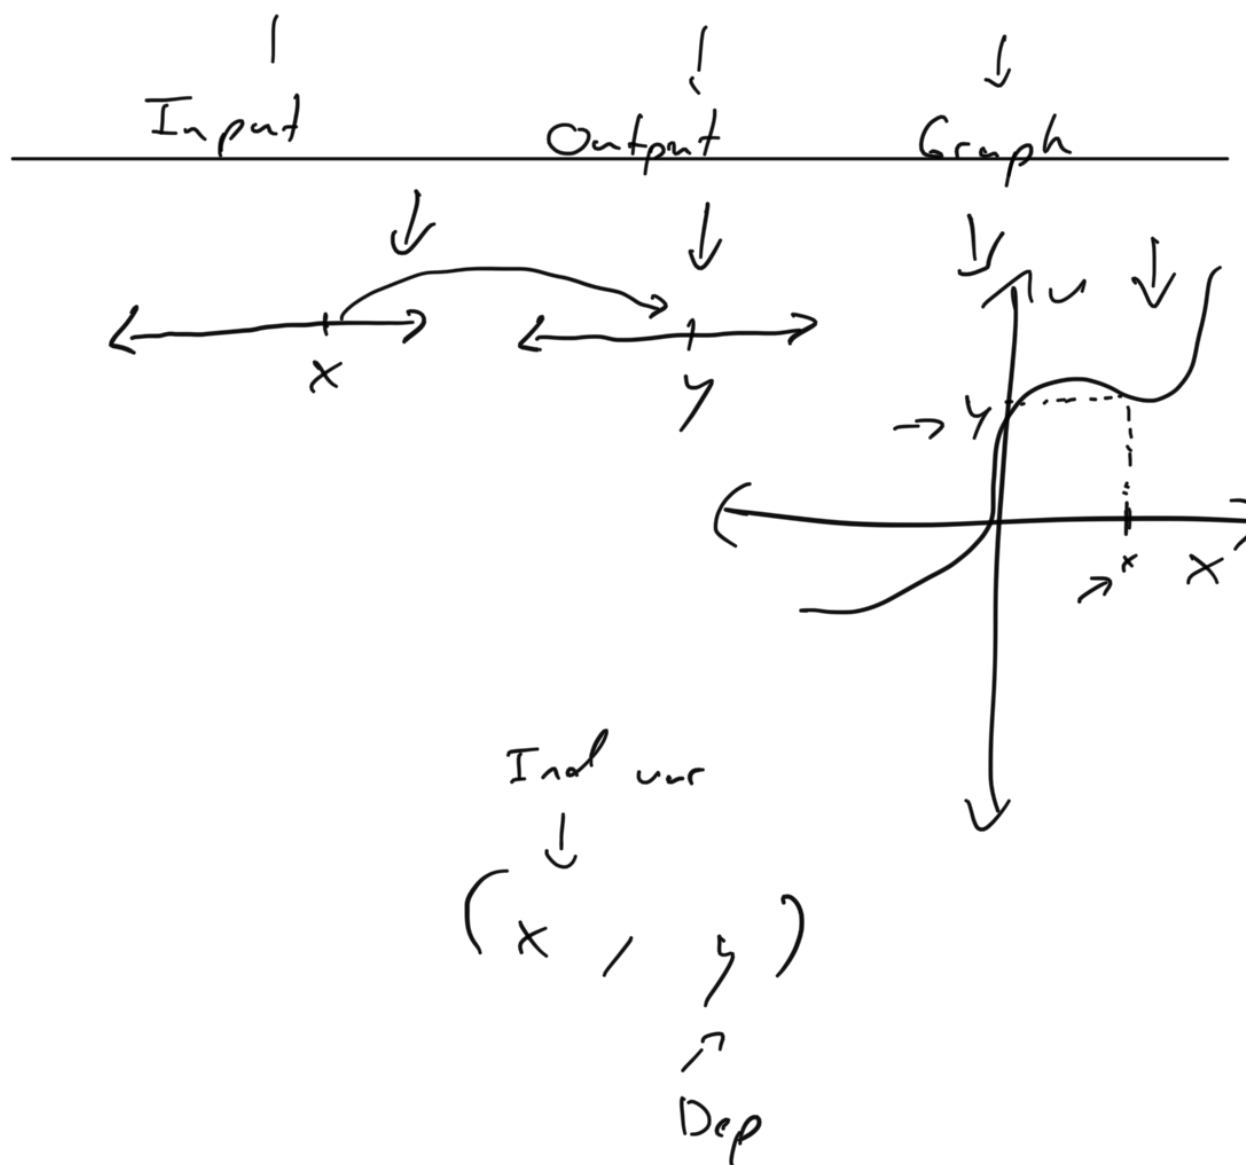 Input Output Graph
x y
y
x x
Ind var
(x , y)
Dep